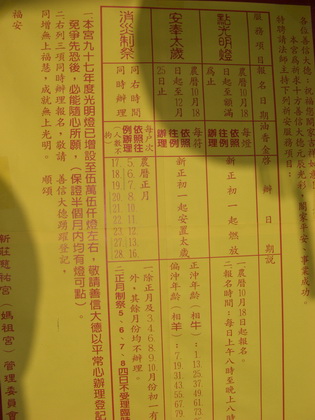 各位善信大德、祝福您闔家
特聘請法師主持下列新安服務項目：
服務項目 報名日期 油香金 辦理日期 說
點光明燈
農曆10月18
日起至額滿
為止
每燈
依照
往例
辦理
新正初一起燃放
安奉太歲
農曆10月18
日起至12月
25日止
每符
依照
往例
辦理
新正初一起安置太歲
消災制祭
同右時間
同時辦理
每戶次
依照往
例辦理
人數
農曆正月
5、6、7、8、
9、10、11、12、
13、14、15、16、
17、18、19、20、
21、22、23、
27、28
一農曆10月18日起報名。
二報名時間：每日上午八時至晚上八時
正沖年齡（相牛）：1、13、25、37、49、61、73、
偏沖年齡（相羊）：7、19、31、43、55、67、79
一除正月及3、4、6、8、9、10月份初一有
外，其餘月份均不辦理。
二正月制祭5、6、7、8四日不受理臨時
一本宮九十七年度光明燈已增設至伍萬伍仟燈左右，敬請善信大德以平常心辦理登記
免爭先恐後，必能隨心所願，（保證半個月內均有燈可點）。
二右列三項同時辦理報名，敬請 善信大德踴躍登記，
同增無上福慧，成就無上光明。 順頌
福安
新莊慈祐宮（媽祖宮）管理委員會